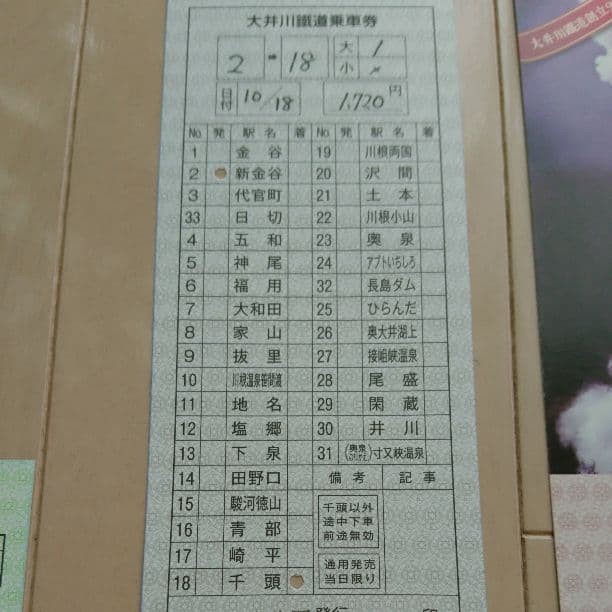 大井川鐵道乗車券
2 - 18 大 1
小 ×
日付 10/18 1,720円
No. 発 駅名 着 No. 発 駅名 着
1 金谷 19 川根両国
2 新金谷 20 沢間
3 代官町 21 土本
33 日切 22 川根小山
4 五和 23 奥泉
5 神尾 24 アプトいちしろ
6 福用 32 長島ダム
7 大和田 25 ひらんだ
8 家山 26 奥大井湖上
9 抜里 27 接岨峡温泉
10 川根温泉笹間渡 28 尾盛
11 地名 29 閑蔵
12 塩郷 30 井川
13 下泉 31 寸又峡温泉
14 田野口 備考 記事
15 駿河徳山
16 青部
17 崎平
18 千頭
千頭以外
途中下車
前途無効
通用発売
当日限り
大井川鐵道創立